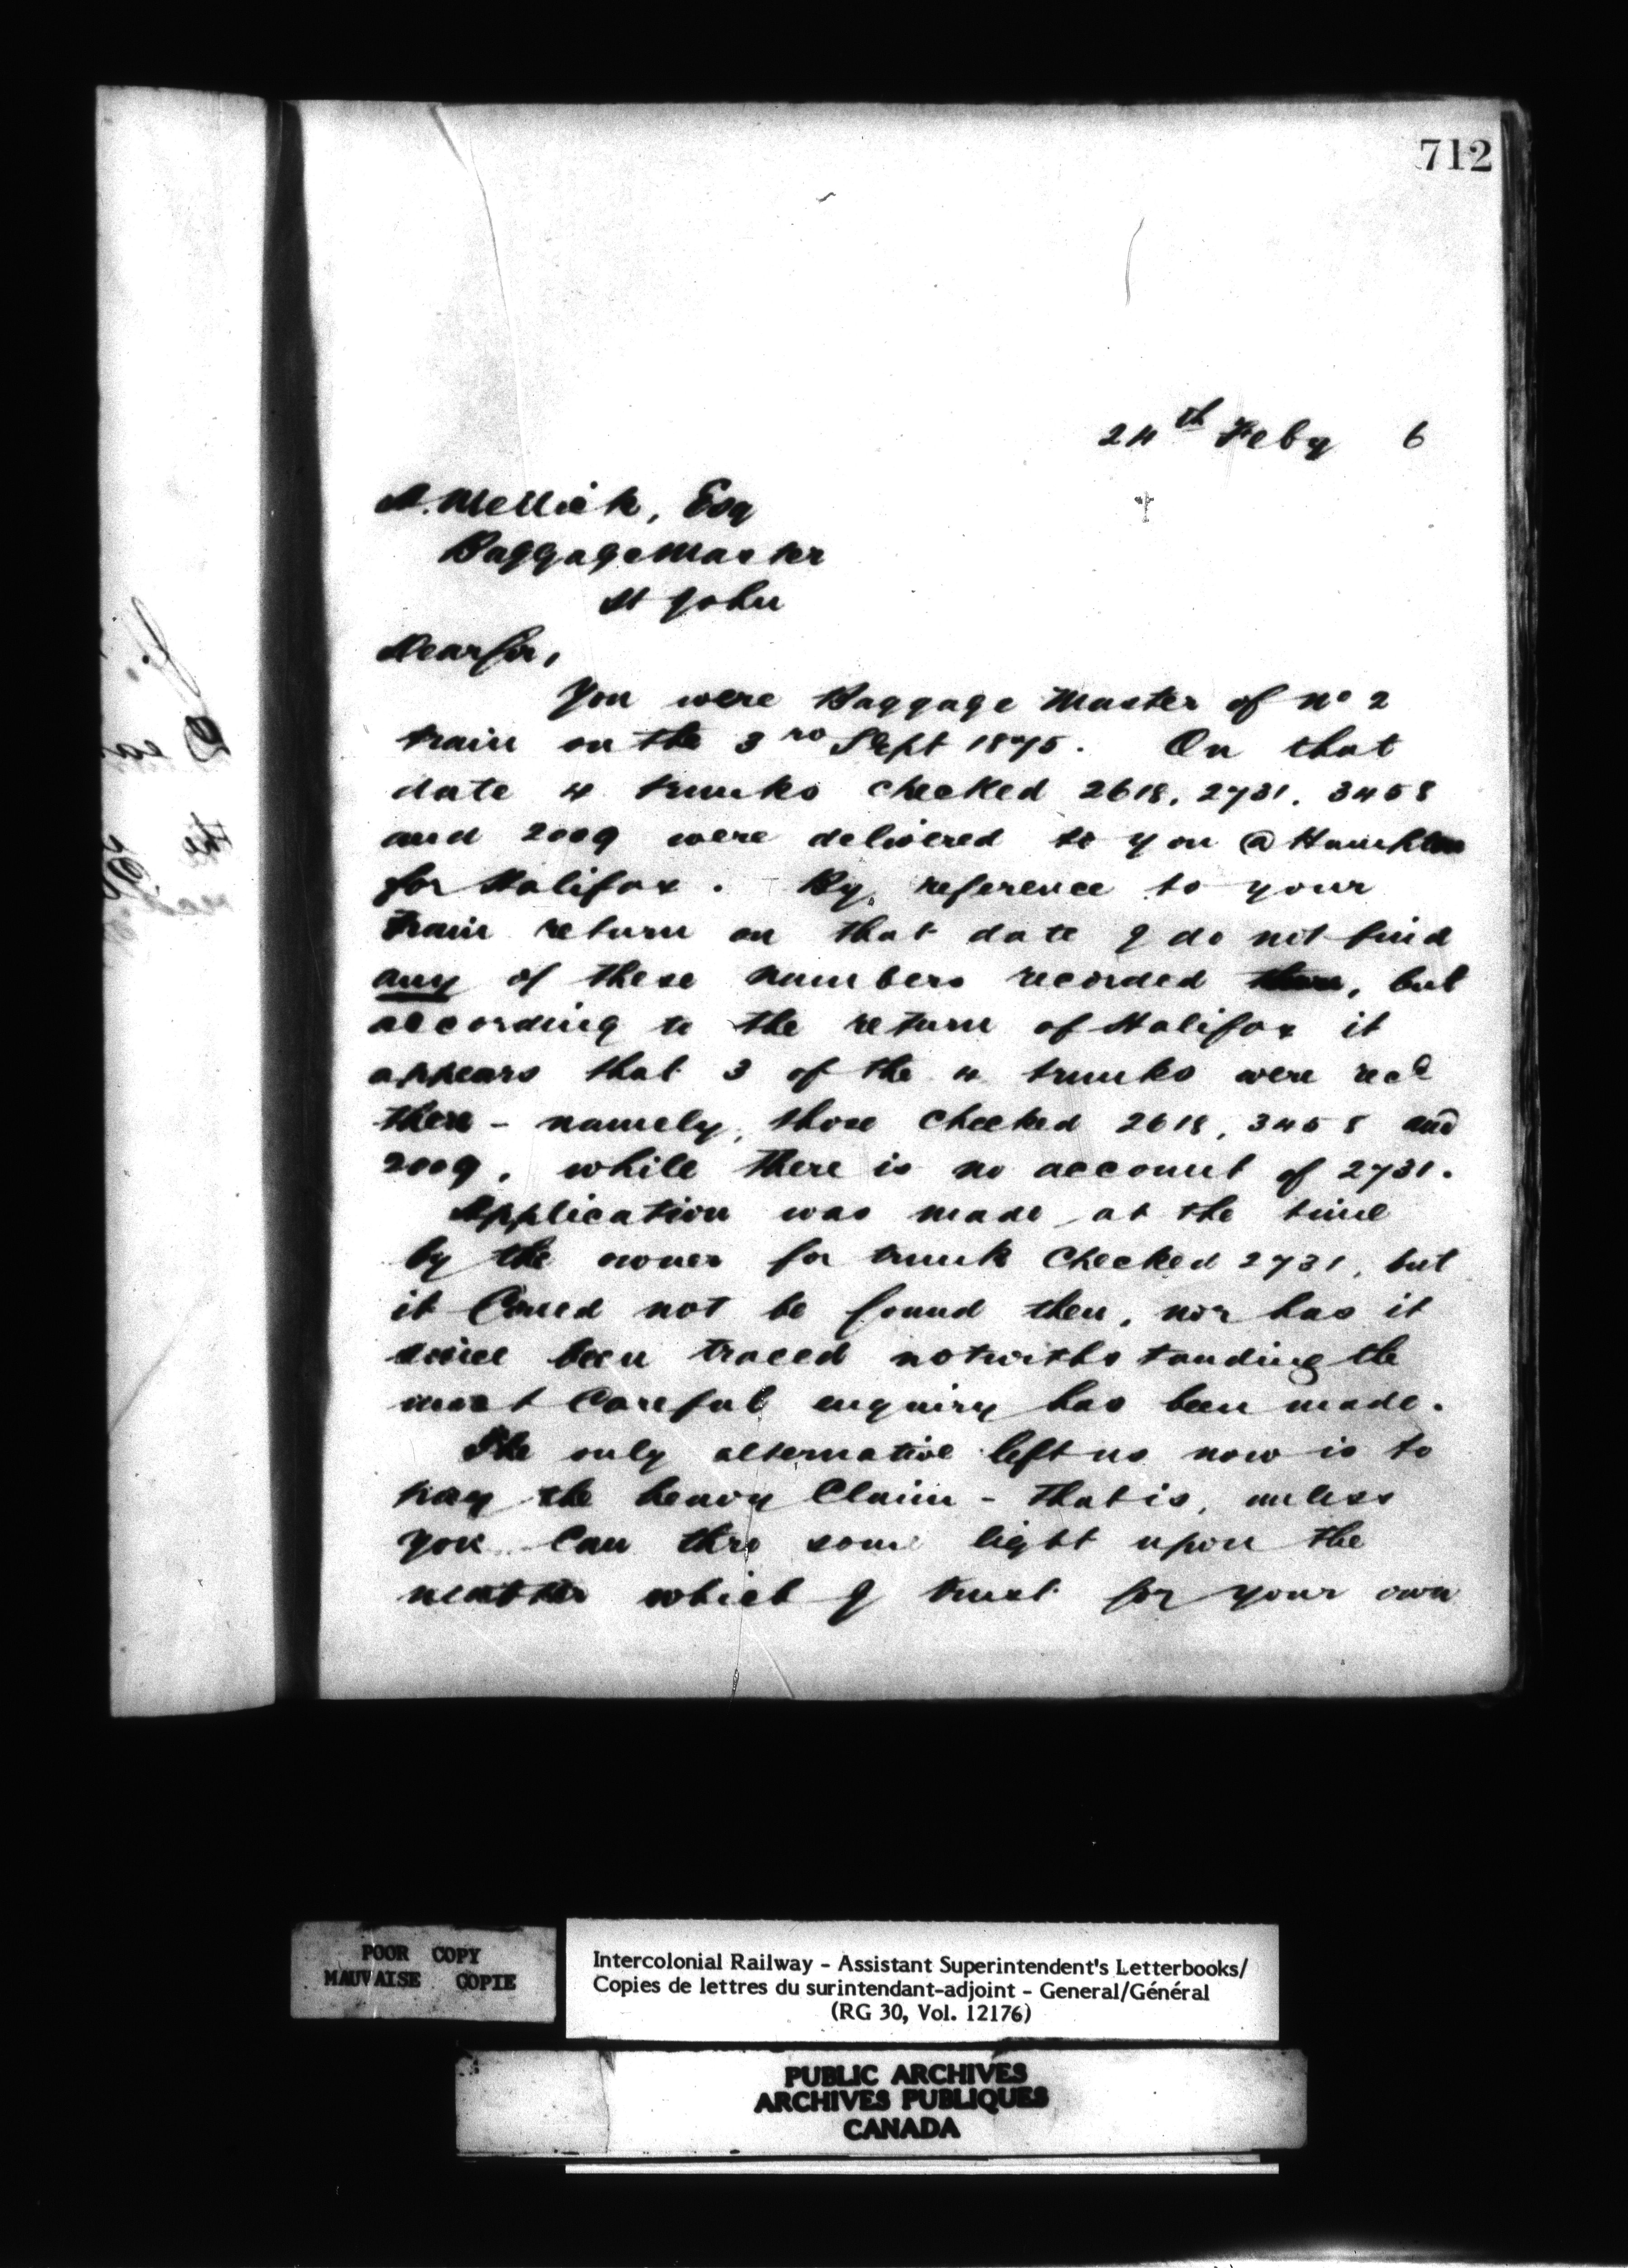 712
24th Feby 6
A. Mellick, Esq
Baggage Master
St John
Dear Sir,
You were Baggage Master of No 2
train on the 3rd Sept 1875. On that
date 4 trunks checked 2618, 2731, 3458
and 2009 were delivered to you @ Hampton
for Halifax. By reference to your
train return on that date I do not find
any of these numbers recorded there, but
according to the return of Halifax it
appears that 3 of the 4 trunks were recd
there - namely, those checked 2618, 3458 and
2009, while there is no account of 2731.
Application was made at the time
by the owner for trunk checked 2731, but
it Coued not be found then, nor has it
since been traced notwithstanding the
most Careful enquiry has been made.
The only alternative left us now is to
pay the heavy Claim - that is, unless
you Can thro some light upon the
matter which I trust for your own
POOR COPY
MAUVAISE COPIE
Intercolonial Railway - Assistant Superintendent's Letterbooks/
Copies de lettres du surintendant-adjoint - General/Général
(RG 30, Vol. 12176)
PUBLIC ARCHIVES
ARCHIVES PUBLIQUES
CANADA